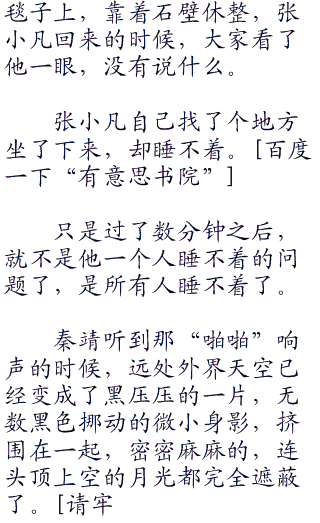 毯子上，靠着石壁休整，张
小凡回来的时候，大家看了
他一眼，没有说什么。
张小凡自己找了个地方
坐了下来，却睡不着。[百度
一下“有意思书院”]
只是过了数分钟之后，
就不是他一个人睡不着的问
题了，是所有人睡不着了。
秦靖听到那“啪啪”响
声的时候，远处外界天空已
经变成了黑压压的一片，无
数黑色挪动的微小身影，挤
围在一起，密密麻麻的，连
头顶上空的月光都完全遮蔽
了。[请牢